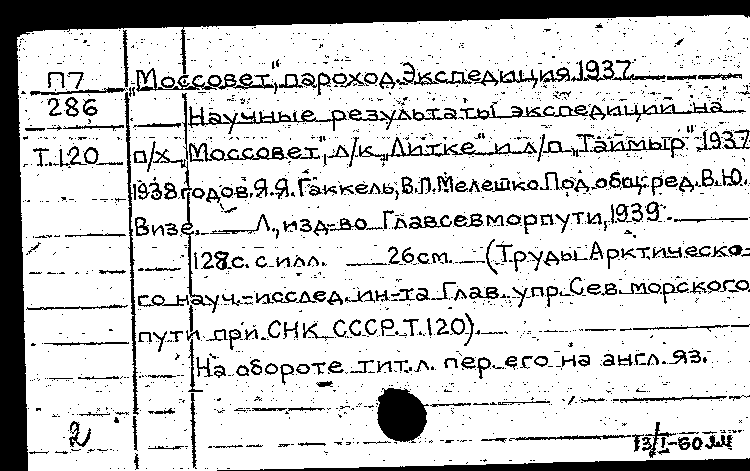 П7 „Моссовет“, пароход. Экспедиция. 1937
286 Научные результаты экспедиций на
Т.120 п/х „Моссовет“, л/к „Литке“ и л/п „Таймыр“ 1937
1938 годов. Я.Я. Гаккель, В.П. Мелешко. Под общ. ред. В.Ю.
Визе. Л., изд-во Главсевморпути, 1939.
128с. с илл. 26см. (Труды Арктическо-
го науч.-исслед. ин-та Глав. упр. Сев. морского
пути при СНК СССР. Т.120).
На обороте тит.л. пер. его на англ. яз.
2 13/I-60